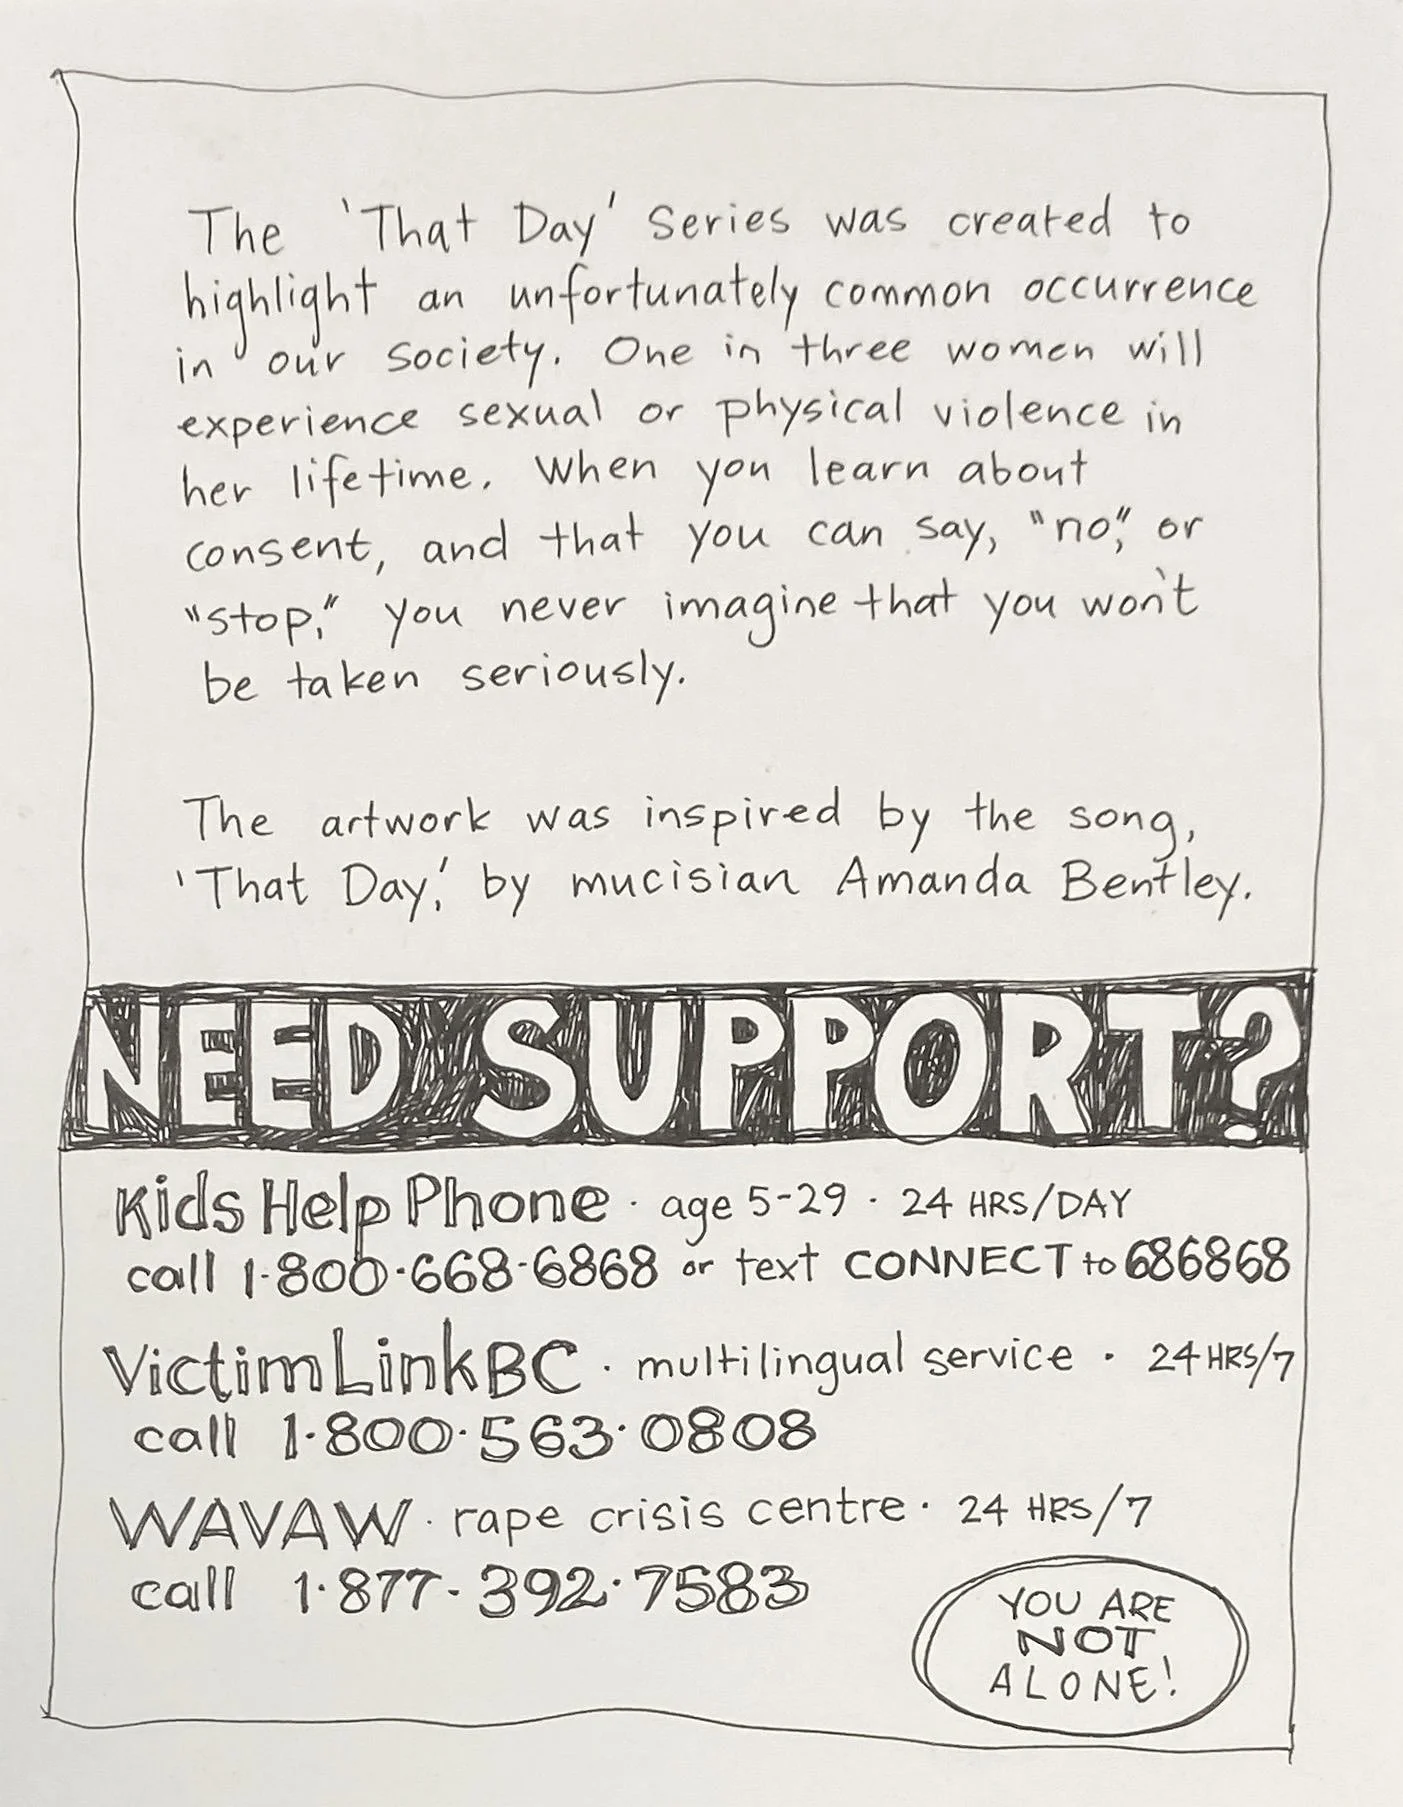 The 'That Day' Series was created to
highlight an unfortunately common occurrence
in our society. One in three women will
experience sexual or physical violence in
her lifetime. When you learn about
consent, and that you can say, "no," or
"stop," you never imagine that you won't
be taken seriously.
The artwork was inspired by the song,
'That Day,' by mucisian Amanda Bentley.
NEED SUPPORT?
Kids Help Phone · age 5-29 · 24 HRS/DAY
call 1-800-668-6868 or text CONNECT to 686868
VictimLinkBC · multilingual service · 24 HRS/7
call 1·800·563·0808
WAVAW · rape crisis centre · 24 HRS/7
call 1·877-392·7583
YOU ARE
NOT
ALONE!